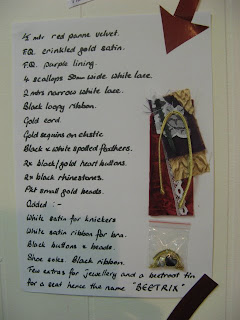 ½ mtr red panne velvet.
F.Q. crinkled gold satin.
F.Q. purple lining.
4 scallops 50mm wide white lace.
2 mtrs narrow white lace.
Black loopy ribbon.
Gold cord.
Gold sequins on elastic
Black & white spotted feathers.
2x black/gold heart buttons.
2x black rhinestones.
Pkt small gold beads.
Added :-
White satin for knickers
White satin ribbon for bra.
Black buttons & beads.
Shoe soles. Black ribbon.
Few extras for jewellery and a beetroot tin
for a seat hence the name "BEETRIX"